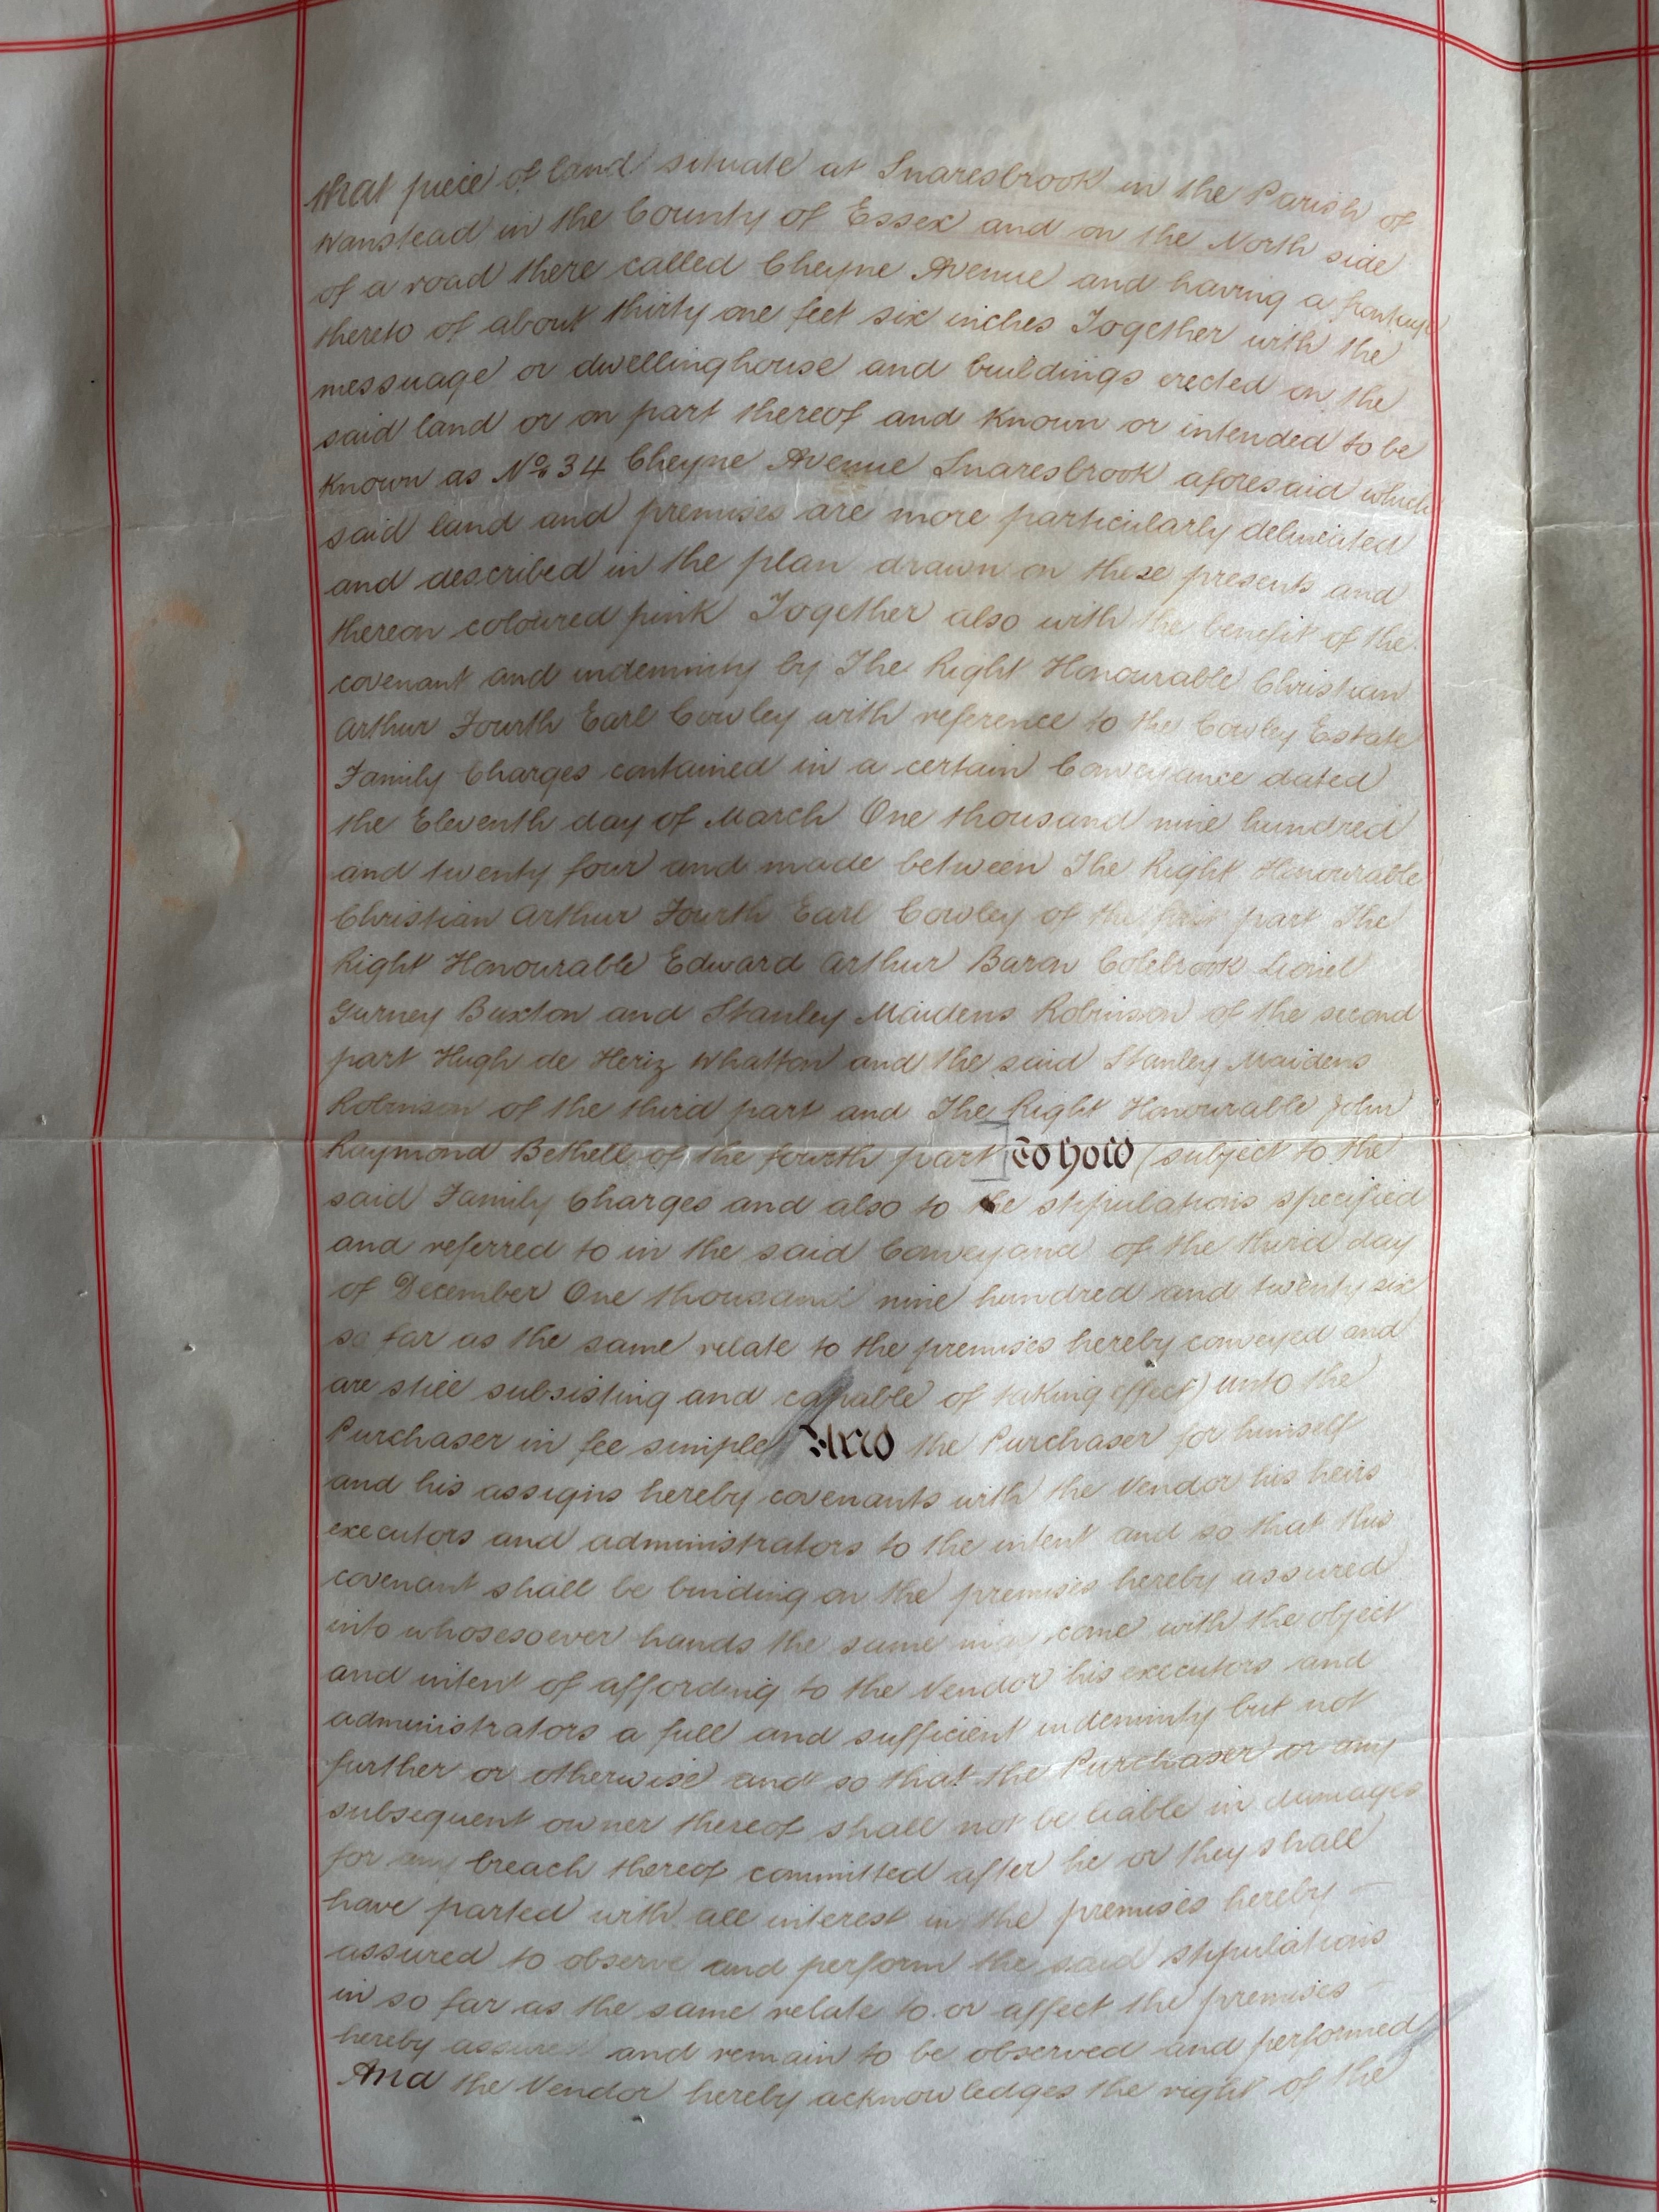 that piece of land situate at Snaresbrook in the Parish of
Wanstead in the County of Essex and on the North side
of a road there called Cheyne Avenue and having a frontage
thereto of about thirty one feet six inches Together with the
messuage or dwellinghouse and buildings erected on the
said land or on part thereof and known or intended to be
known as No. 34 Cheyne Avenue Snaresbrook aforesaid which
said land and premises are more particularly delineated
and described in the plan drawn on these presents and
thereon coloured pink Together also with the benefit of the
covenant and indemnity by The Right Honourable Christian
Arthur Fourth Earl Cowley with reference to the Cowley Estate
Family Charges contained in a certain Conveyance dated
the Eleventh day of March One thousand nine hundred
and twenty four and made between The Right Honourable
Christian Arthur Fourth Earl Cowley of the first part The
Right Honourable Edward Arthur Baron Colebrook Lionel
Gurney Buxton and Stanley Maidens Robinson of the second
part Hugh de Heriz Whatton and the said Stanley Maidens
Robinson of the third part and The Right Honourable John
Raymond Bethell of the fourth part To Hold (subject to the
said Family Charges and also to the stipulations specified
and referred to in the said Conveyance of the third day
of December One thousand nine hundred and twenty six
so far as the same relate to the premises hereby conveyed and
are still subsisting and capable of taking effect) unto the
Purchaser in fee simple And the Purchaser for himself
and his assigns hereby covenants with the Vendor his heirs
executors and administrators to the intent and so that this
covenant shall be binding on the premises hereby assured
into whosesoever hands the same may come with the object
and intent of affording to the Vendor his executors and
administrators a full and sufficient indemnity but not
further or otherwise and so that the Purchaser or any
subsequent owner thereof shall not be liable in damages
for any breach thereof committed after he or they shall
have parted with all interest in the premises hereby
assured to observe and perform the said stipulations
in so far as the same relate to or affect the premises
hereby assured and remain to be observed and performed
And the Vendor hereby acknowledges the right of the